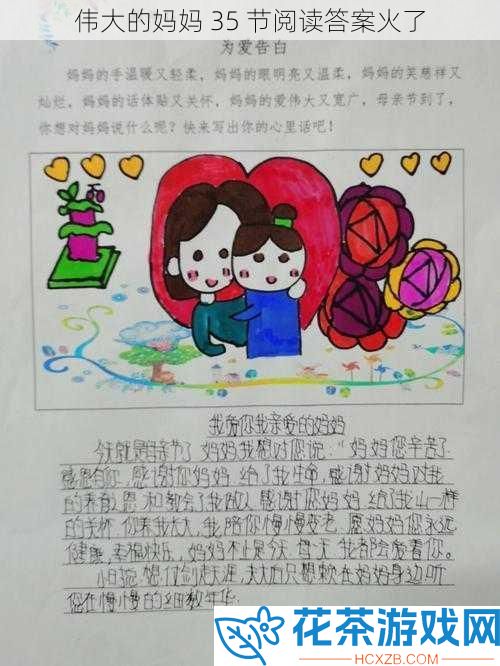 伟大的妈妈 35 节阅读答案火了
为爱告白
妈妈的手温暖又轻柔，妈妈的眼明亮又温柔，妈妈的笑慈祥又
灿烂，妈妈的话体贴又关怀，妈妈的爱伟大又宽广，母亲节到了，
你想对妈妈说什么呢？快来写出你的心里话吧！
我爱你我亲爱的妈妈
今天就是母亲节了，妈妈我想对您说："妈妈您辛苦了
感恩有你，感谢你妈妈，给了我生命，感谢妈妈对我
的养育之恩，和教会了我做人，感谢你妈妈，给了我山一样
的关怀，你养我长大，我陪你慢慢变老，愿妈妈您永远
健康，幸福快乐，妈妈不止是今天，每一天我都会爱着你。
小时候，想仗剑走天涯，长大后只想赖在妈妈身边听
您在慢慢的细数年华。
花茶游戏网
HCXZB.COM